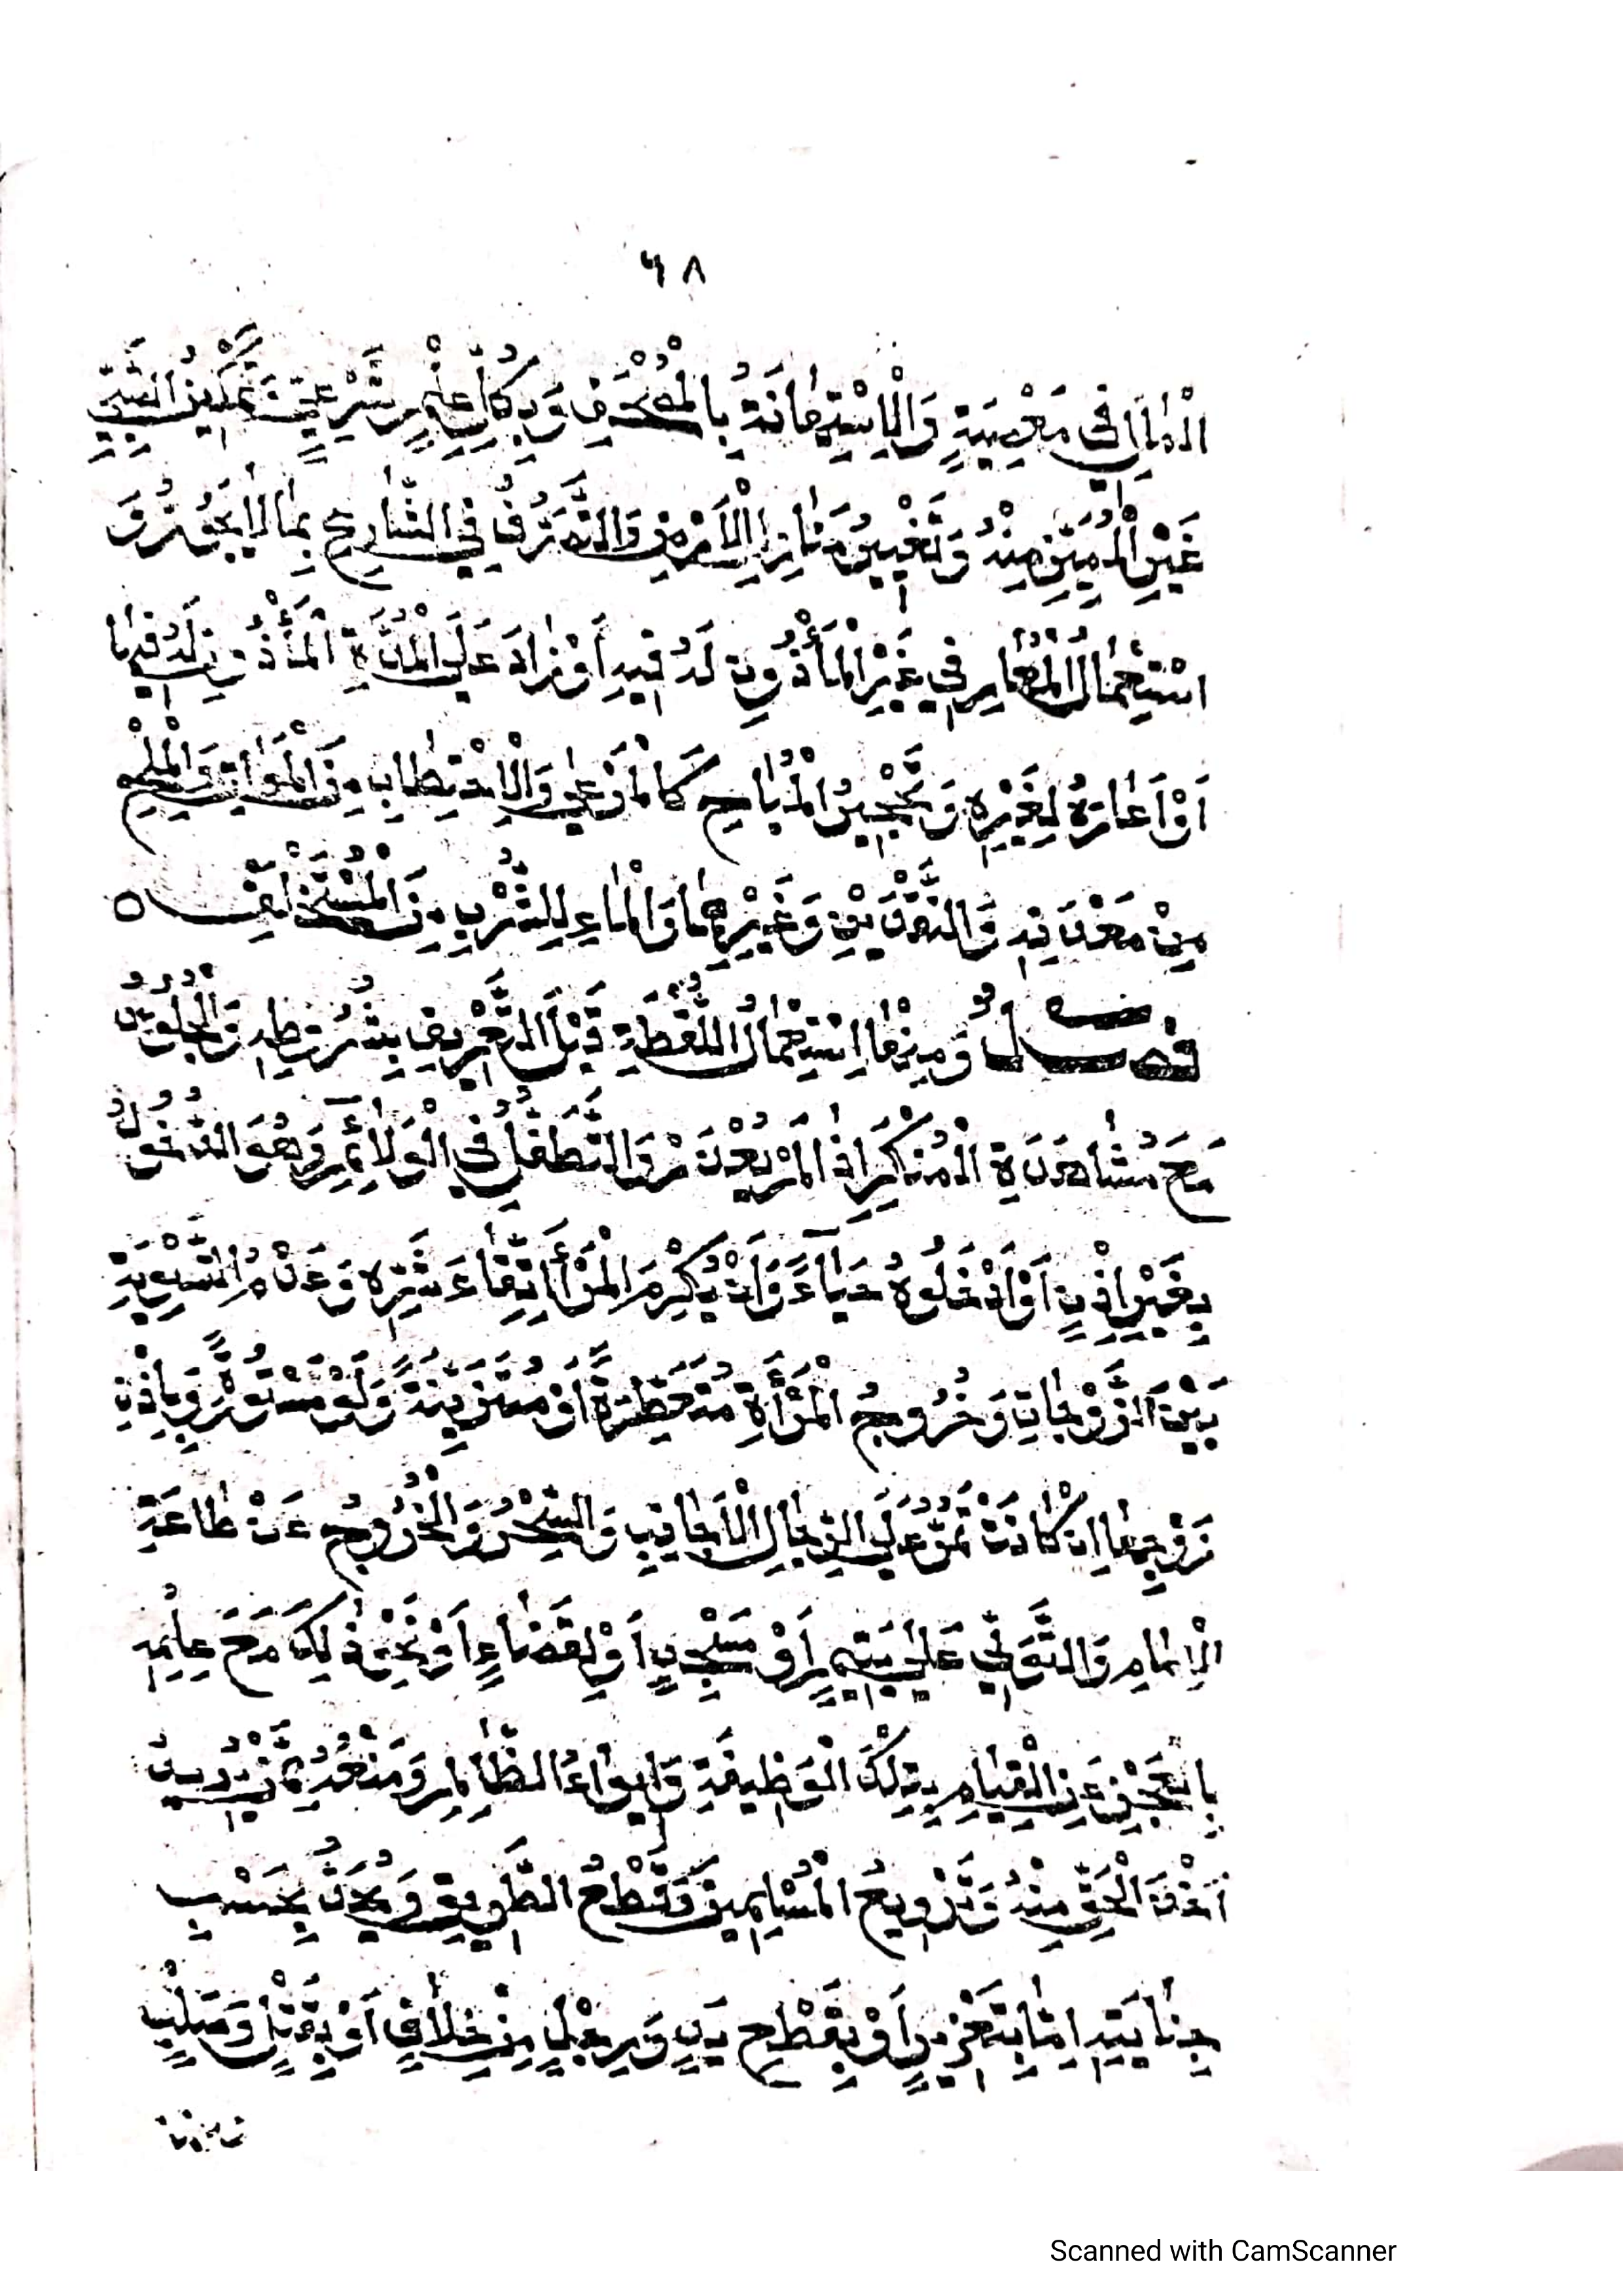 ٦٨
الْمَالِ فِي مَعْصِيَةٍ وَالْاِسْتِهَانَةُ بِالْمُصْحَفِ وَبِكُلِّ عِلْمٍ شَرْعِيٍّ وَتَمْكِينُ الصَّبِيِّ
غَيْرِ الْمُمَيِّزِ مِنْهُ وَتَغْيِيرُ مَنَارِ الْأَرْضِ وَالتَّصَرُّفُ فِي الشَّارِعِ بِمَا لَا يَجُوزُ وَ
اسْتِعْمَالُ الْمُعَارِ فِي غَيْرِ الْمَأْذُونِ لَهُ فِيهِ أَوْ زَادَ عَلَى الْمُدَّةِ الْمَأْذُونِ لَهُ فِيهَا
أَوْ أَعَارَهُ لِغَيْرِهِ وَتَحْجِيرُ الْمُبَاحِ كَالْمَرْعَى وَالْاِحْتِطَابِ مِنَ الْمَوَاتِ وَالْمِلْحِ
مِنْ مَعْدَنِهِ وَالنَّقْدَيْنِ وَغَيْرِهِمَا وَالْمَاءِ لِلشُّرْبِ مِنَ الْمُسْتَخْلَفِ ه
فصل وَمِنْهَا اسْتِعْمَالُ اللُّقَطَةِ قَبْلَ التَّعْرِيفِ بِشُرُوطِهِ وَالْجُلُوسُ
مَعَ مُشَاهَدَةِ الْمُنْكَرِ إِذَا لَمْ يُعْذَرْ وَالتَّطَفُّلُ فِي الْوَلَائِمِ وَهُوَ الدُّخُولُ
بِغَيْرِ إِذْنٍ أَوْ أَدْخَلُوهُ حَيَاءً وَأَنْ يُكْرَمَ الْمَرْأُ اتِّقَاءَ شَرِّهِ وَعَدَمُ التَّسْوِيَةِ
بَيْنَ الزَّوْجَاتِ وَخُرُوجُ الْمَرْأَةِ مُتَعَطِّرَةً أَوْ مُتَزَيِّنَةً وَلَوْ مَسْتُورَةً وَبِإِذْنِ
زَوْجِهَا إِنْ كَانَتْ تَمُرُّ عَلَى الرِّجَالِ الْأَجَانِبِ وَالسِّحْرُ وَالْخُرُوجُ عَنْ طَاعَةِ
الْإِمَامِ وَالتَّوَلِّي عَلَى يَتِيمٍ أَوْ مَسْجِدٍ أَوْ لِقَضَاءٍ أَوْ نَحْوِ ذَلِكَ مَعَ عِلْمِهِ
بِالْعَجْزِ عَنِ الْقِيَامِ بِتِلْكَ الْوَظِيفَةِ وَإِيوَاءُ الظَّالِمِ وَمَنْعُهُ مِمَّنْ يُرِيدُ
أَخْذَ الْحَقِّ مِنْهُ وَتَرْوِيعُ الْمُسْلِمِينَ وَقَطْعُ الطَّرِيقِ وَيُحَدُّ بِحَسْبِ
جِنَايَتِهِ إِمَّا بِتَعْزِيرٍ أَوْ بِقَطْعِ يَدٍ وَرِجْلٍ مِنْ خِلَافٍ أَوْ بِقَتْلٍ وَصَلْبٍ
Scanned with CamScanner